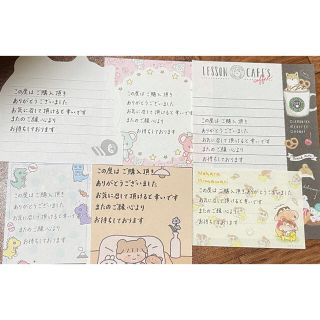 この度はご購入頂き
ありがとうございました
お気に召して頂けると幸いです
またのご縁心より
お待ちしております
この度はご購入頂き
ありがとうございました
お気に召して頂けると幸いです
またのご縁心より
お待ちしております
LESSON CAFE'S
この度はご購入頂き
ありがとうございました
お気に召して頂けると幸いです
またのご縁心より
お待ちしております
この度はご購入頂き
ありがとうございました
お気に召して頂けると幸いです
またのご縁心より
お待ちしております
この度はご購入頂き
ありがとうございました
お気に召して頂けると幸いです
またのご縁心より
お待ちしております
この度はご購入頂きありがとうございました
お気に召して頂けると幸いです
またのご縁心より
お待ちしております